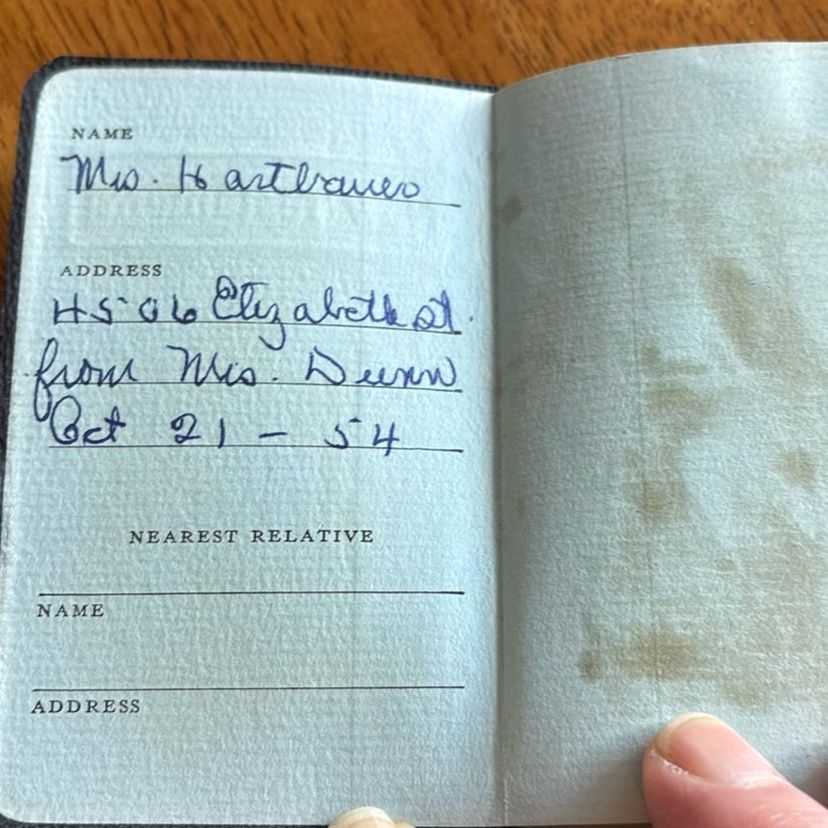 NAME
Mrs. Hartbauer
ADDRESS
4506 Elizabeth St.
from Mrs. Dunn
Oct 21 - 54
NEAREST RELATIVE
NAME
ADDRESS